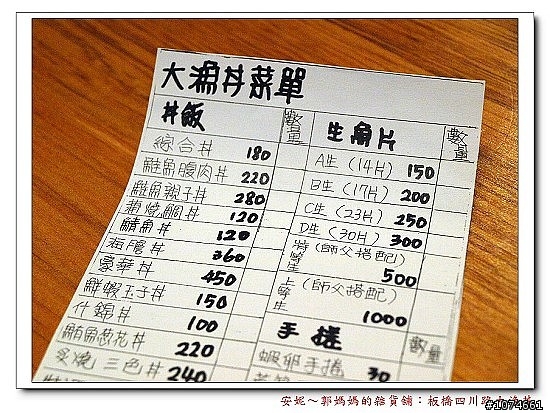 大漁丼菜單
丼飯 數量
綜合丼 180
鮭魚腹肉丼 220
鮭魚親子丼 280
鯛丼 120
鯖魚丼 120
海膽丼 360
豪華丼 450
鮮蝦玉子丼 150
什錦丼 100
鮪魚葱花丼 220
炙燒三色丼 240
生魚片 數量
A生(14片) 150
B生(17片) 200
C生(23片) 250
D生(30片) 300
特等生(師父搭配) 500
上等生(師父搭配) 1000
手捲 數量
蝦卵手捲 30
安妮～郭媽媽的雜貨舖：板橋四川路
#1074661